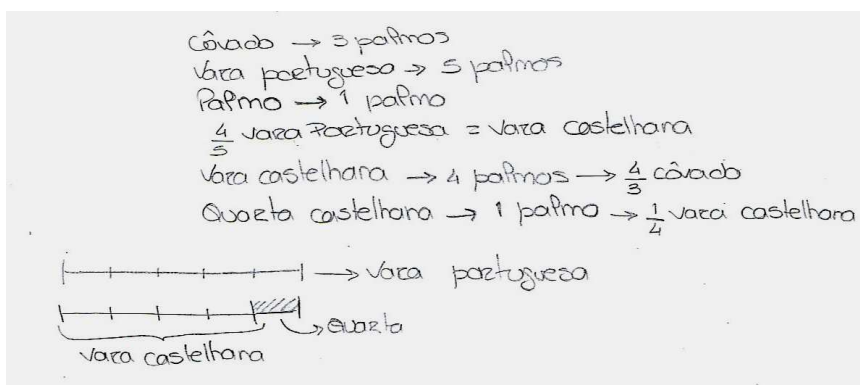 Côvado → 3 palmos
Vara portuguesa → 5 palmos
Palmo → 1 palmo
4/5 vara Portuguesa = Vara castelhana
Vara castelhana → 4 palmos → 4/3 côvado
Quarta castelhana → 1 palmo → 1/4 vara castelhana
→ Vara portuguesa
→ Quarta
Vara castelhana